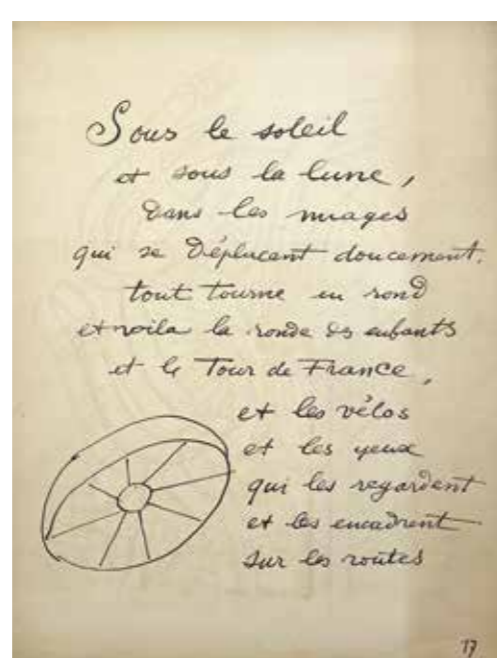 Sous le soleil
et sous la lune,
Dans les nuages
qui se Déplacent doucement.
tout tourne en rond
et voila la ronde des enfants
et le Tour de France,
et les vélos
et les yeux
qui les regardent
et les encadrent
sur les routes
17